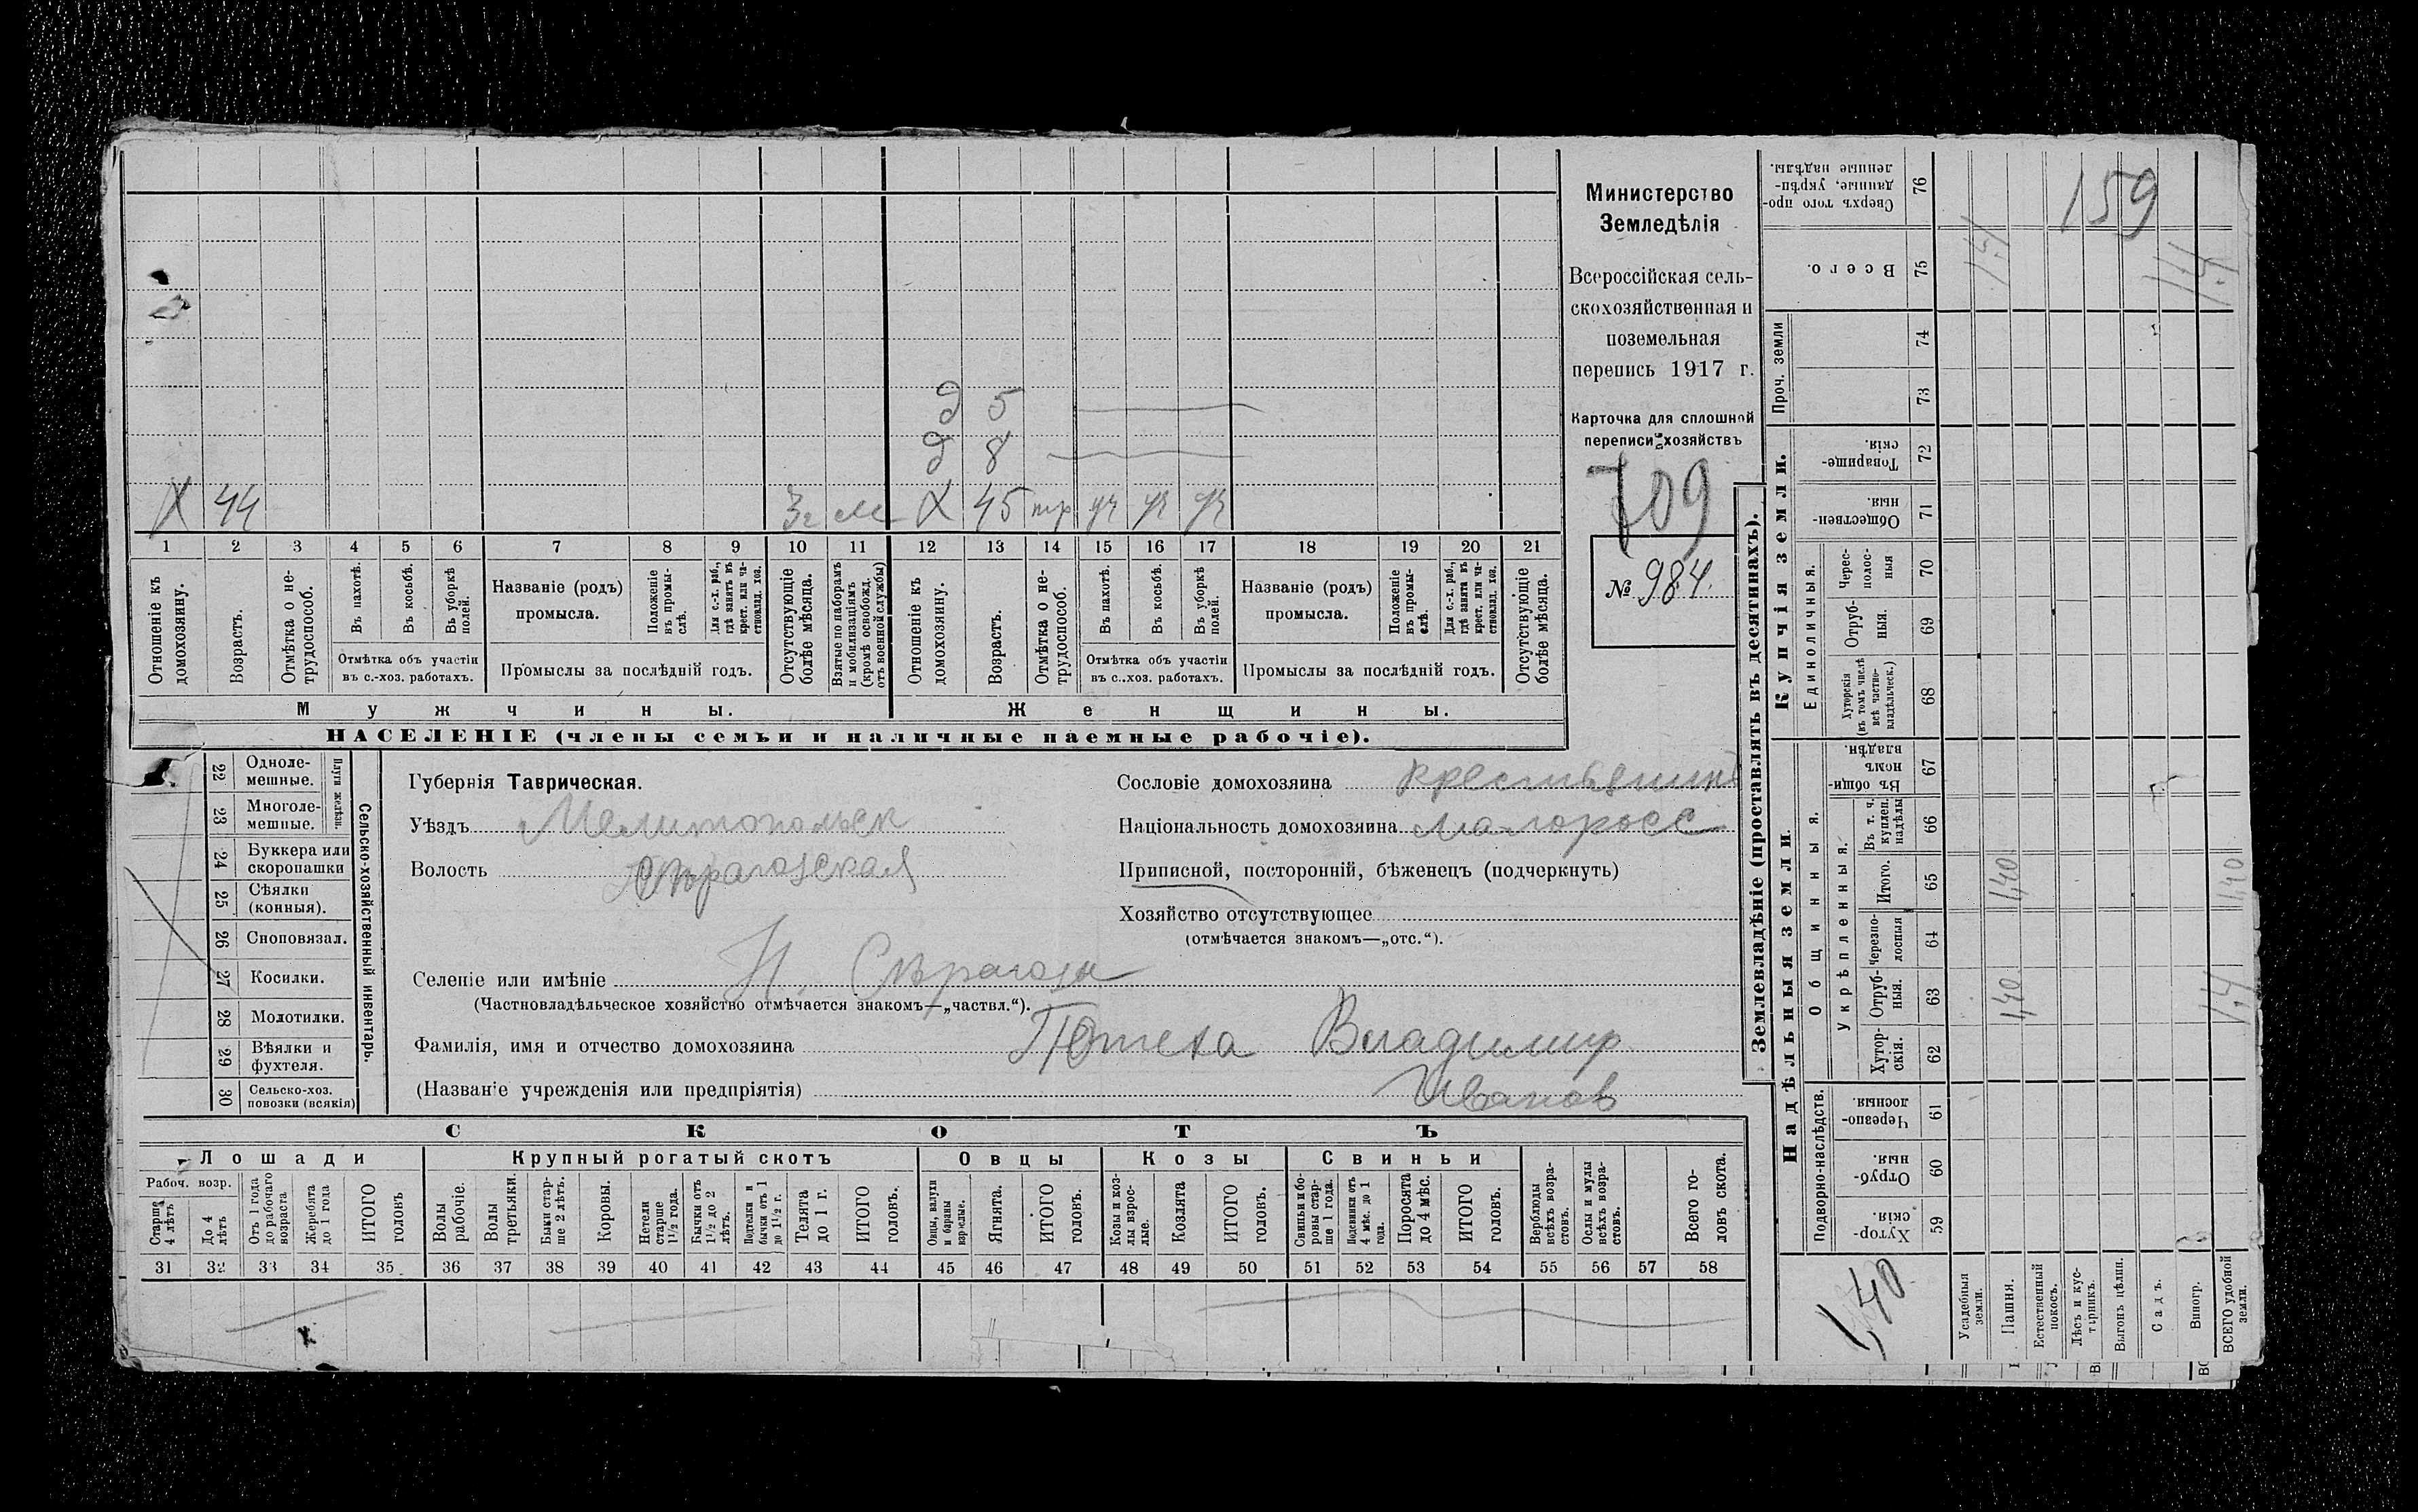 Министерство
Земледѣлія
Всероссійская сель-
скохозяйственная и
поземельная
перепись 1917 г.
Карточка для сплошной
переписи хозяйствъ
709
№ 984.
159
д 5
д 8
Х 44 3г м Х 45 тр уч уч уч
1 2 3 4 5 6 7 8 9 10 11 12 13 14 15 16 17 18 19 20 21
Отношеніе къ домохозяину.
Возрастъ.
Отмѣтка о не-трудоспособ.
Въ пахотѣ.
Въ косьбѣ.
Въ уборкѣ полей.
Отмѣтка объ участіи
въ с.-хоз. работахъ.
Названіе (родъ)
промысла.
Положеніе въ промы-слѣ.
Для с.-х. раб., гдѣ занятъ въ крест. или ча-стновлад. хоз.
Промыслы за послѣдній годъ.
Отсутствующіе болѣе мѣсяца.
Взятые по наборамъ и мобилизаціямъ (кромѣ освобожд. отъ военной службы)
Отношеніе къ домохозяину.
Возрастъ.
Отмѣтка о не-трудоспособ.
Въ пахотѣ.
Въ косьбѣ.
Въ уборкѣ полей.
Отмѣтка объ участіи
въ с..хоз. работахъ.
Названіе (родъ)
промысла.
Положеніе въ промы-слѣ.
Для с.-х. раб., гдѣ занята въ крест. или ча-стновлад. хоз.
Промыслы за послѣдній годъ.
Отсутствующіе болѣе мѣсяца.
Мужчины.
Женщины.
НАСЕЛЕНІЕ (члены семьи и наличные наемные рабочіе).
22 Одноле-мешные.
23 Многоле-мешные.
Плуги желѣзн.
24 Буккера или скоропашки
25 Сѣялки (конныя).
26 Сноповязал.
27 Косилки.
28 Молотилки.
29 Вѣялки и фухтеля.
30 Сельско-хоз. повозки (всякія)
Сельско-хозяйственный инвентарь.
Губернія Таврическая.
Уѣздъ Мелитопольск
Волость
Сословіе домохозяина крестьянинъ
Національность домохозяина малоросс
Приписной, посторонній, бѣженецъ (подчеркнуть)
Хозяйство отсутствующее
(отмѣчается знакомъ—„отс.“).
Селеніе или имѣніе Н. Сѣрагозы
(Частновладѣльческое хозяйство отмѣчается знакомъ—„частвл.“).
Фамилія, имя и отчество домохозяина Потеха Владимир
(Названіе учрежденія или предпріятія) Иванов
СКОТЪ
Лошади
Крупный рогатый скотъ
Овцы
Козы
Свиньи
Рабоч. возр.
Старше 4 лѣтъ
До 4 лѣтъ
Отъ 1 года до рабочаго возраста
Жеребята до 1 года
ИТОГО головъ
Волы рабочіе.
Волы третьяки.
Быки стар-ше 2 лѣтъ.
Коровы.
Нетели старше 1½ года.
Бычки отъ 1½ до 2 лѣтъ.
Подтелки и бычки отъ 1 до 1½ г.
Телята до 1 г.
ИТОГО головъ.
Овцы, валухи и бараны взрослые.
Ягнята.
ИТОГО головъ.
Козы и коз-лы взрос-лые.
Козлята
ИТОГО головъ.
Свиньи и бо-ровы стар-ше 1 года.
Подсвинки отъ 4 мѣс. до 1 года.
Поросята до 4 мѣс.
ИТОГО головъ.
Верблюды всѣхъ возра-стовъ.
Ослы и мулы всѣхъ возра-стовъ.
Всего го-ловъ скота.
31 32 33 34 35 36 37 38 39 40 41 42 43 44 45 46 47 48 49 50 51 52 53 54 55 56 57 58
Землевладѣніе (проставлять въ десятинахъ).
Надѣльныя земли
Купчія земли.
Проч. земли
Подворно-наслѣдств.
Общинныя.
Укрѣпленныя.
Единоличныя.
Хутор-скія. 59
Отруб-ныя. 60
Черезпо-лосныя. 61
Хутор-скія. 62
Отруб-ныя. 63
Черезпо-лосныя 64
Итого. 65
Въ т. ч. куплен. надѣлы 66
Въ общи-номъ владѣн. 67
Хуторскія (въ томъ числѣ всѣ частно-владѣльческ.) 68
Отруб-ныя. 69
Черес-полос-ныя 70
Обществен-ныя. 71
Товарище-скія. 72
73
74
Всего. 75
Сверхъ того про-данные, укрѣп-ленные надѣлы. 76
1,40
Усадебныя земли.
Пашня. 1,40 1,40
Естественный покосъ.
Лѣсъ и кус-тарникъ.
Выгонъ цѣлин.
Садъ.
Виногр.
ВСЕГО удобной земли. 1,4 1,40 1,4